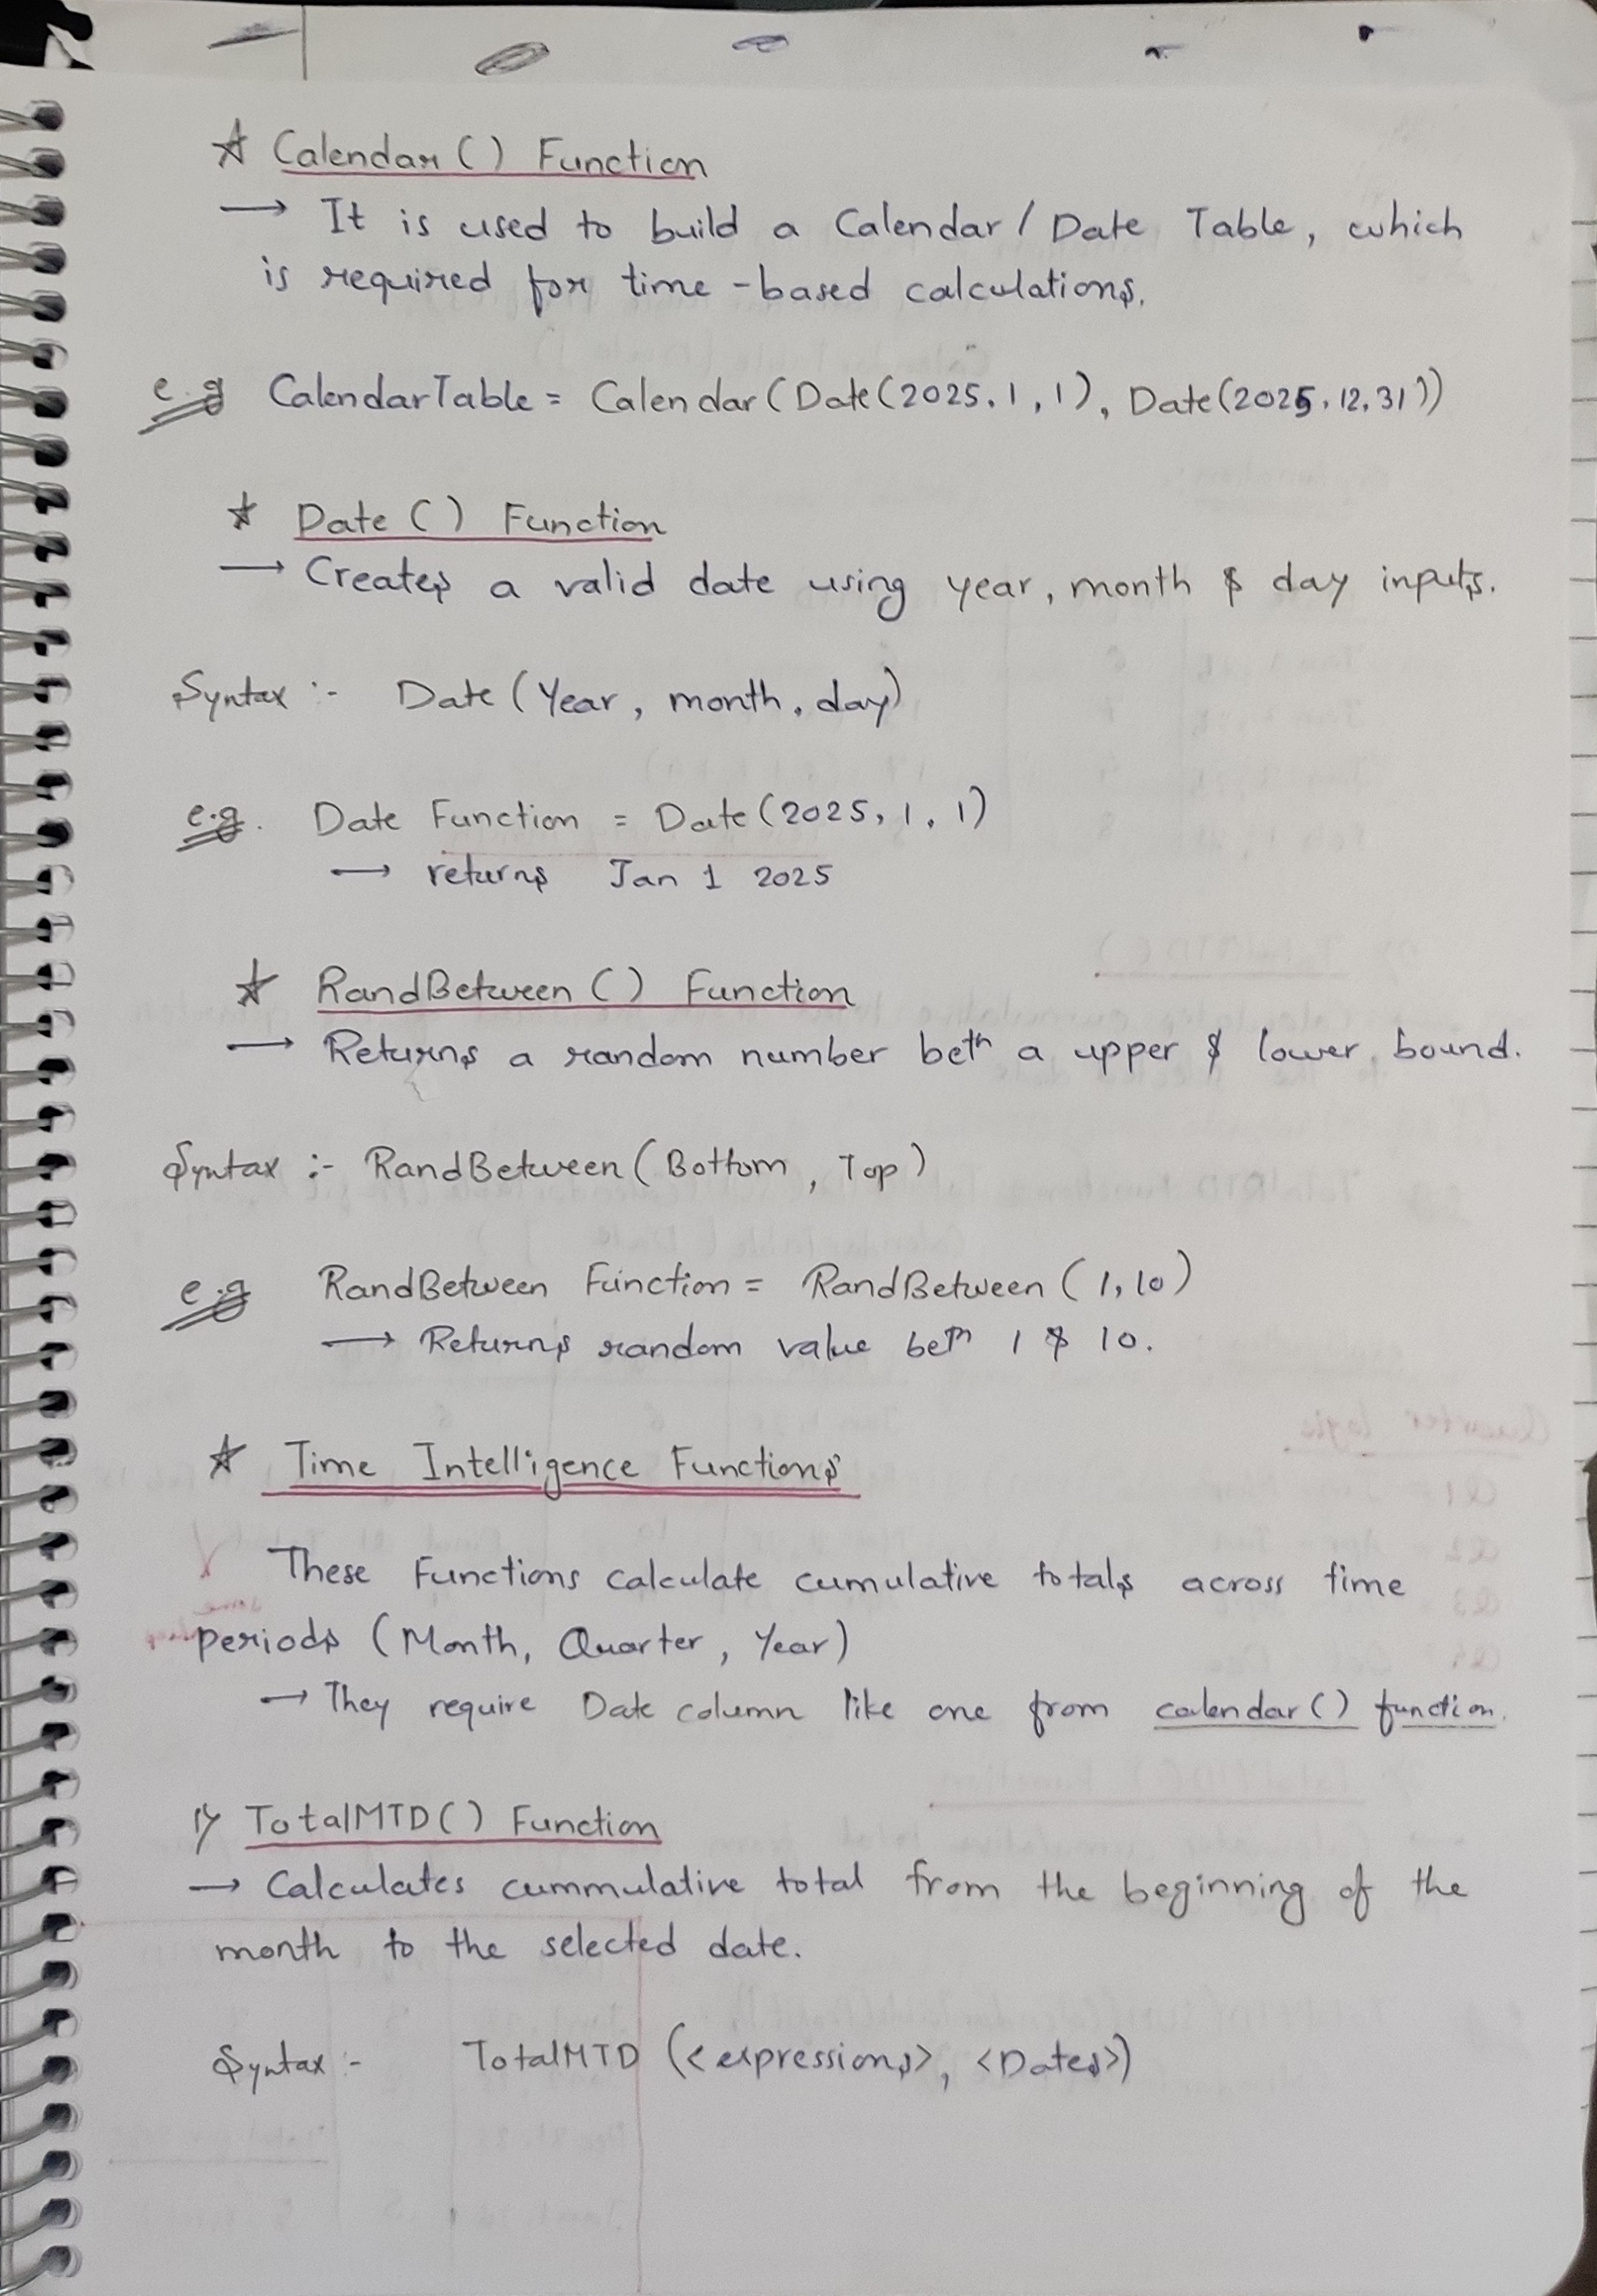 ☆ Calendar () Function
→ It is used to build a Calendar / Date Table, which
is required for time-based calculations.
e.g CalendarTable = Calendar (Date(2025,1,1), Date(2025,12,31))
☆ Date () Function
→ Creates a valid date using year, month & day inputs.
Syntax :- Date (Year, month, day)
e.g. Date Function = Date (2025, 1, 1)
→ returns Jan 1 2025
☆ RandBetween () Function
→ Returns a random number betn a upper & lower bound.
Syntax :- RandBetween (Bottom, Top)
e.g RandBetween Function = RandBetween (1,10)
→ Returns random value betn 1 & 10.
☆ Time Intelligence Functions
These Functions calculate cumulative totals across time
periods (Month, Quarter, Year)
→ They require Date column like one from calendar () function.
1) TotalMTD () Function
→ Calculates cummulative total from the beginning of the
month to the selected date.
Syntax :- TotalMTD (<expressions>, <Dates>)